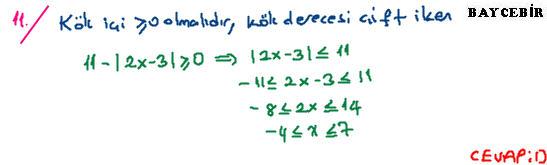 11./ Kök içi ≥0 olmalıdır, kök derecesi çift iken BAYCEBİR
11-|2x-3|≥0 ⇒ |2x-3|≤11
-11≤2x-3≤11
-8≤2x≤14
-4≤x≤7
CEVAP:D